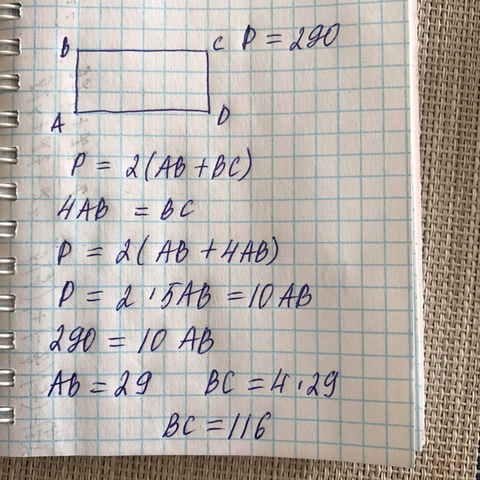 B C P = 290
A D
P = 2(AB + BC)
4AB = BC
P = 2(AB + 4AB)
P = 2 · 5AB = 10 AB
290 = 10 AB
AB = 29 BC = 4 · 29
BC = 116